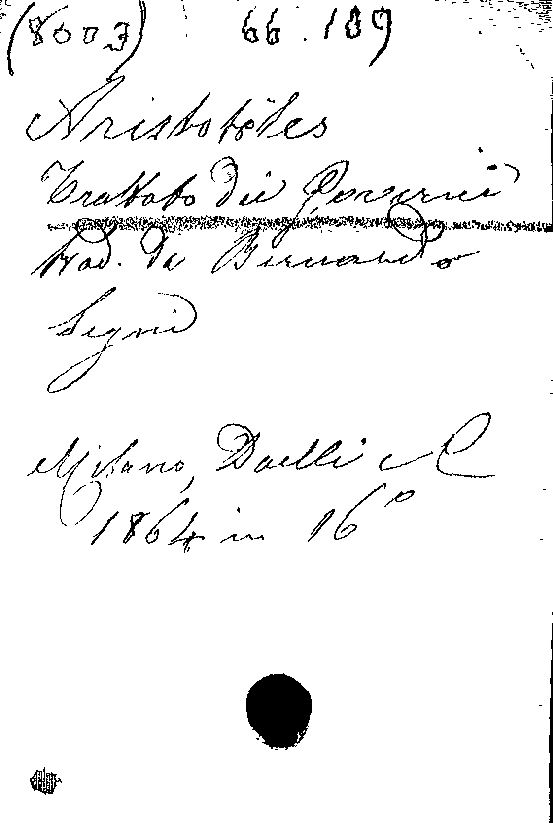 (8003) 66.109
Aristoteles
Trattato dei Governi
trad. da Bernardo
Segni
Milano, Daelli e C
1864 in 16º